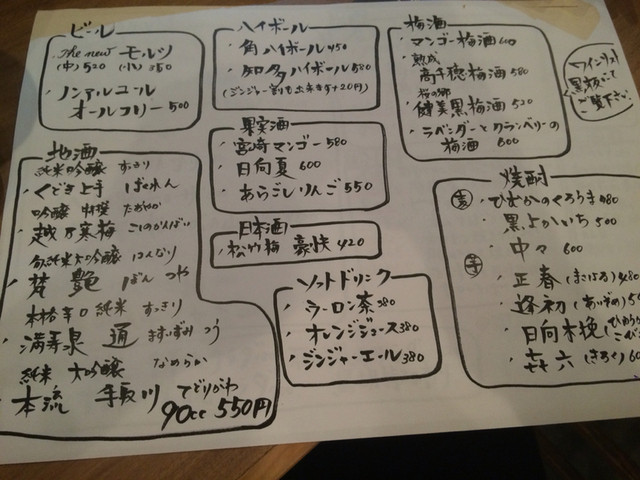 ビール
The new モルツ
(中) 520 (小) 350
ノンアルコール
オールフリー 500
ハイボール
角ハイボール 450
知多ハイボール 580
(ジンジャー割も出来ます+20円)
梅酒
マンゴー梅酒
熟成
高千穂梅酒 580
健美黒梅酒 520
ラベンダーとクランベリーの
梅酒 600
ワインリスト
黒板にて
ご覧下さい
果実酒
宮崎マンゴー 580
日向夏 600
あらごしりんご 550
日本酒
松竹梅 豪快 420
ソフトドリンク
ウーロン茶 380
オレンジジュース 380
ジンジャーエール 380
地酒
純米吟醸 すっきり
くどき上手 ばくれん
吟醸
越乃寒梅 こしのかんばい
純米大吟醸 はんなり
梵 艶 ばん つや
本格辛口 純米 すっきり
満寿泉 通 ますいずみ つう
純米 大吟醸 なめらか
本流 手取川 てどりがわ
90cc 550円
焼酎
麦
ひむかのくろうま 480
黒よかいち 500
中々 600
芋
正春 (まさはる) 480
逢初 (あいぞめ)
日向木挽
㐂六 (きろく)